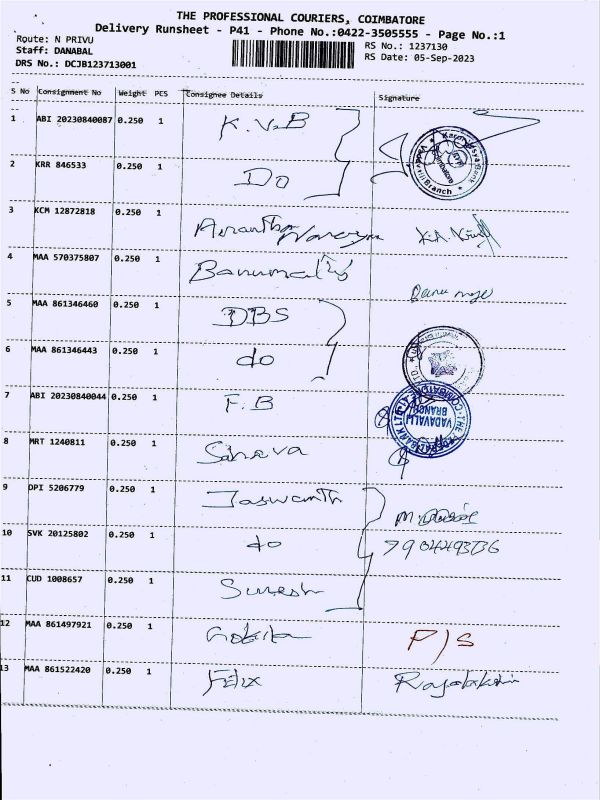 THE PROFESSIONAL COURIERS, COIMBATORE
Delivery Runsheet - P41 - Phone No.:0422-3505555 - Page No.:1
Route: N PRIVU
RS No.: 1237130
Staff: DANABAL
RS Date: 05-Sep-2023
DRS No.: DCJB123713001
S No Consignment No Weight PCS Consignee Details Signature
1 ABI 20230840087 0.250 1 K.V.B
2 KRR 846533 0.250 1 Do
3 KCM 12872818 0.250 1
4 MAA 570375807 0.250 1 Banumathi
5 MAA 861346460 0.250 1 DBS
6 MAA 861346443 0.250 1 do
7 ABI 20230840044 0.250 1 F.B
VADAVALLI
BRANCH
8 MRT 1240811 0.250 1
9 DPI 5206779 0.250 1 Jaswanth
10 SVK 20125802 0.250 1 do
11 CUD 1008657 0.250 1 Suresh
12 MAA 861497921 0.250 1 Gokila P/S
13 MAA 861522420 0.250 1 Felix